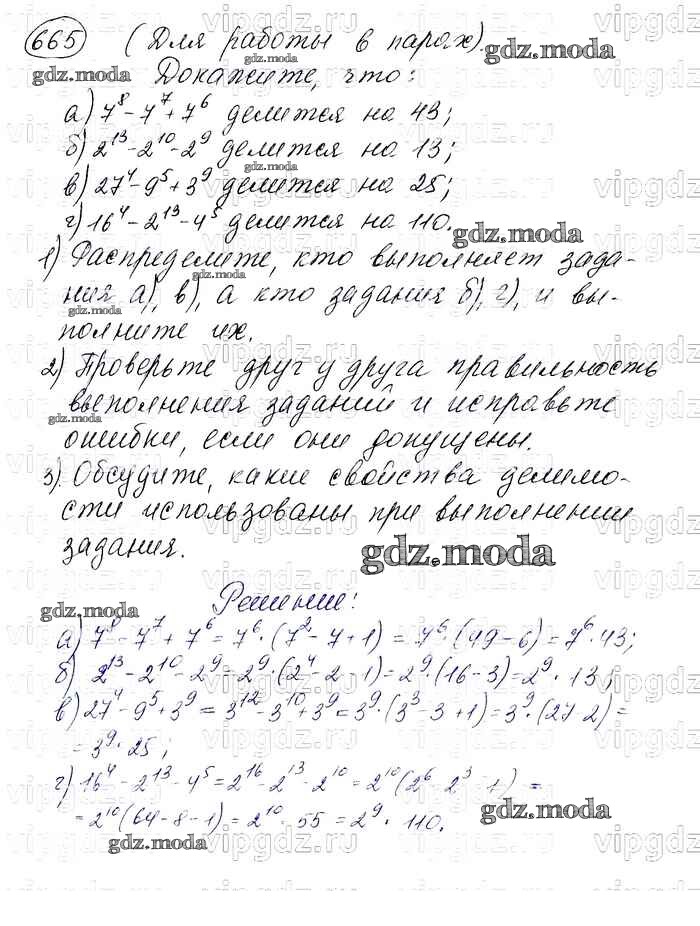 665 (Для работы в парах).
gdz.moda
gdz.moda
Докажите, что:
а) 7⁸ - 7⁷ + 7⁶ делится на 43;
б) 2¹³ - 2¹⁰ - 2⁹ делится на 13;
gdz.moda
в) 27⁴ - 9⁵ + 3⁹ делится на 25;
г) 16⁴ - 2¹³ - 4⁵ делится на 110.
gdz.moda
1) Распределите, кто выполняет зада-
gdz.moda
ния а), в), а кто задания б), г), и вы-
gdz.moda
полните их.
2) Проверьте друг у друга правильность
выполнения заданий и исправьте
gdz.moda
ошибки, если они допущены.
3) Обсудите, какие свойства делимо-
сти использованы при выполнении
задания.
gdz.moda
Решение:
gdz.moda
а) 7⁸ - 7⁷ + 7⁶ = 7⁶ · (7² - 7 + 1) = 7⁶ · (49 - 6) = 7⁶ · 43;
б) 2¹³ - 2¹⁰ - 2⁹ = 2⁹ · (2⁴ - 2 - 1) = 2⁹ · (16 - 3) = 2⁹ · 13;
в) 27⁴ - 9⁵ + 3⁹ = 3¹² - 3¹⁰ + 3⁹ = 3⁹ · (3³ - 3 + 1) = 3⁹ · (27 - 2) =
= 3⁹ · 25;
г) 16⁴ - 2¹³ - 4⁵ = 2¹⁶ - 2¹³ - 2¹⁰ = 2¹⁰ (2⁶ - 2³ - 1) =
= 2¹⁰ (64 - 8 - 1) = 2¹⁰ · 55 = 2⁹ · 110.
gdz.moda
gdz.moda
vipgdz.ru